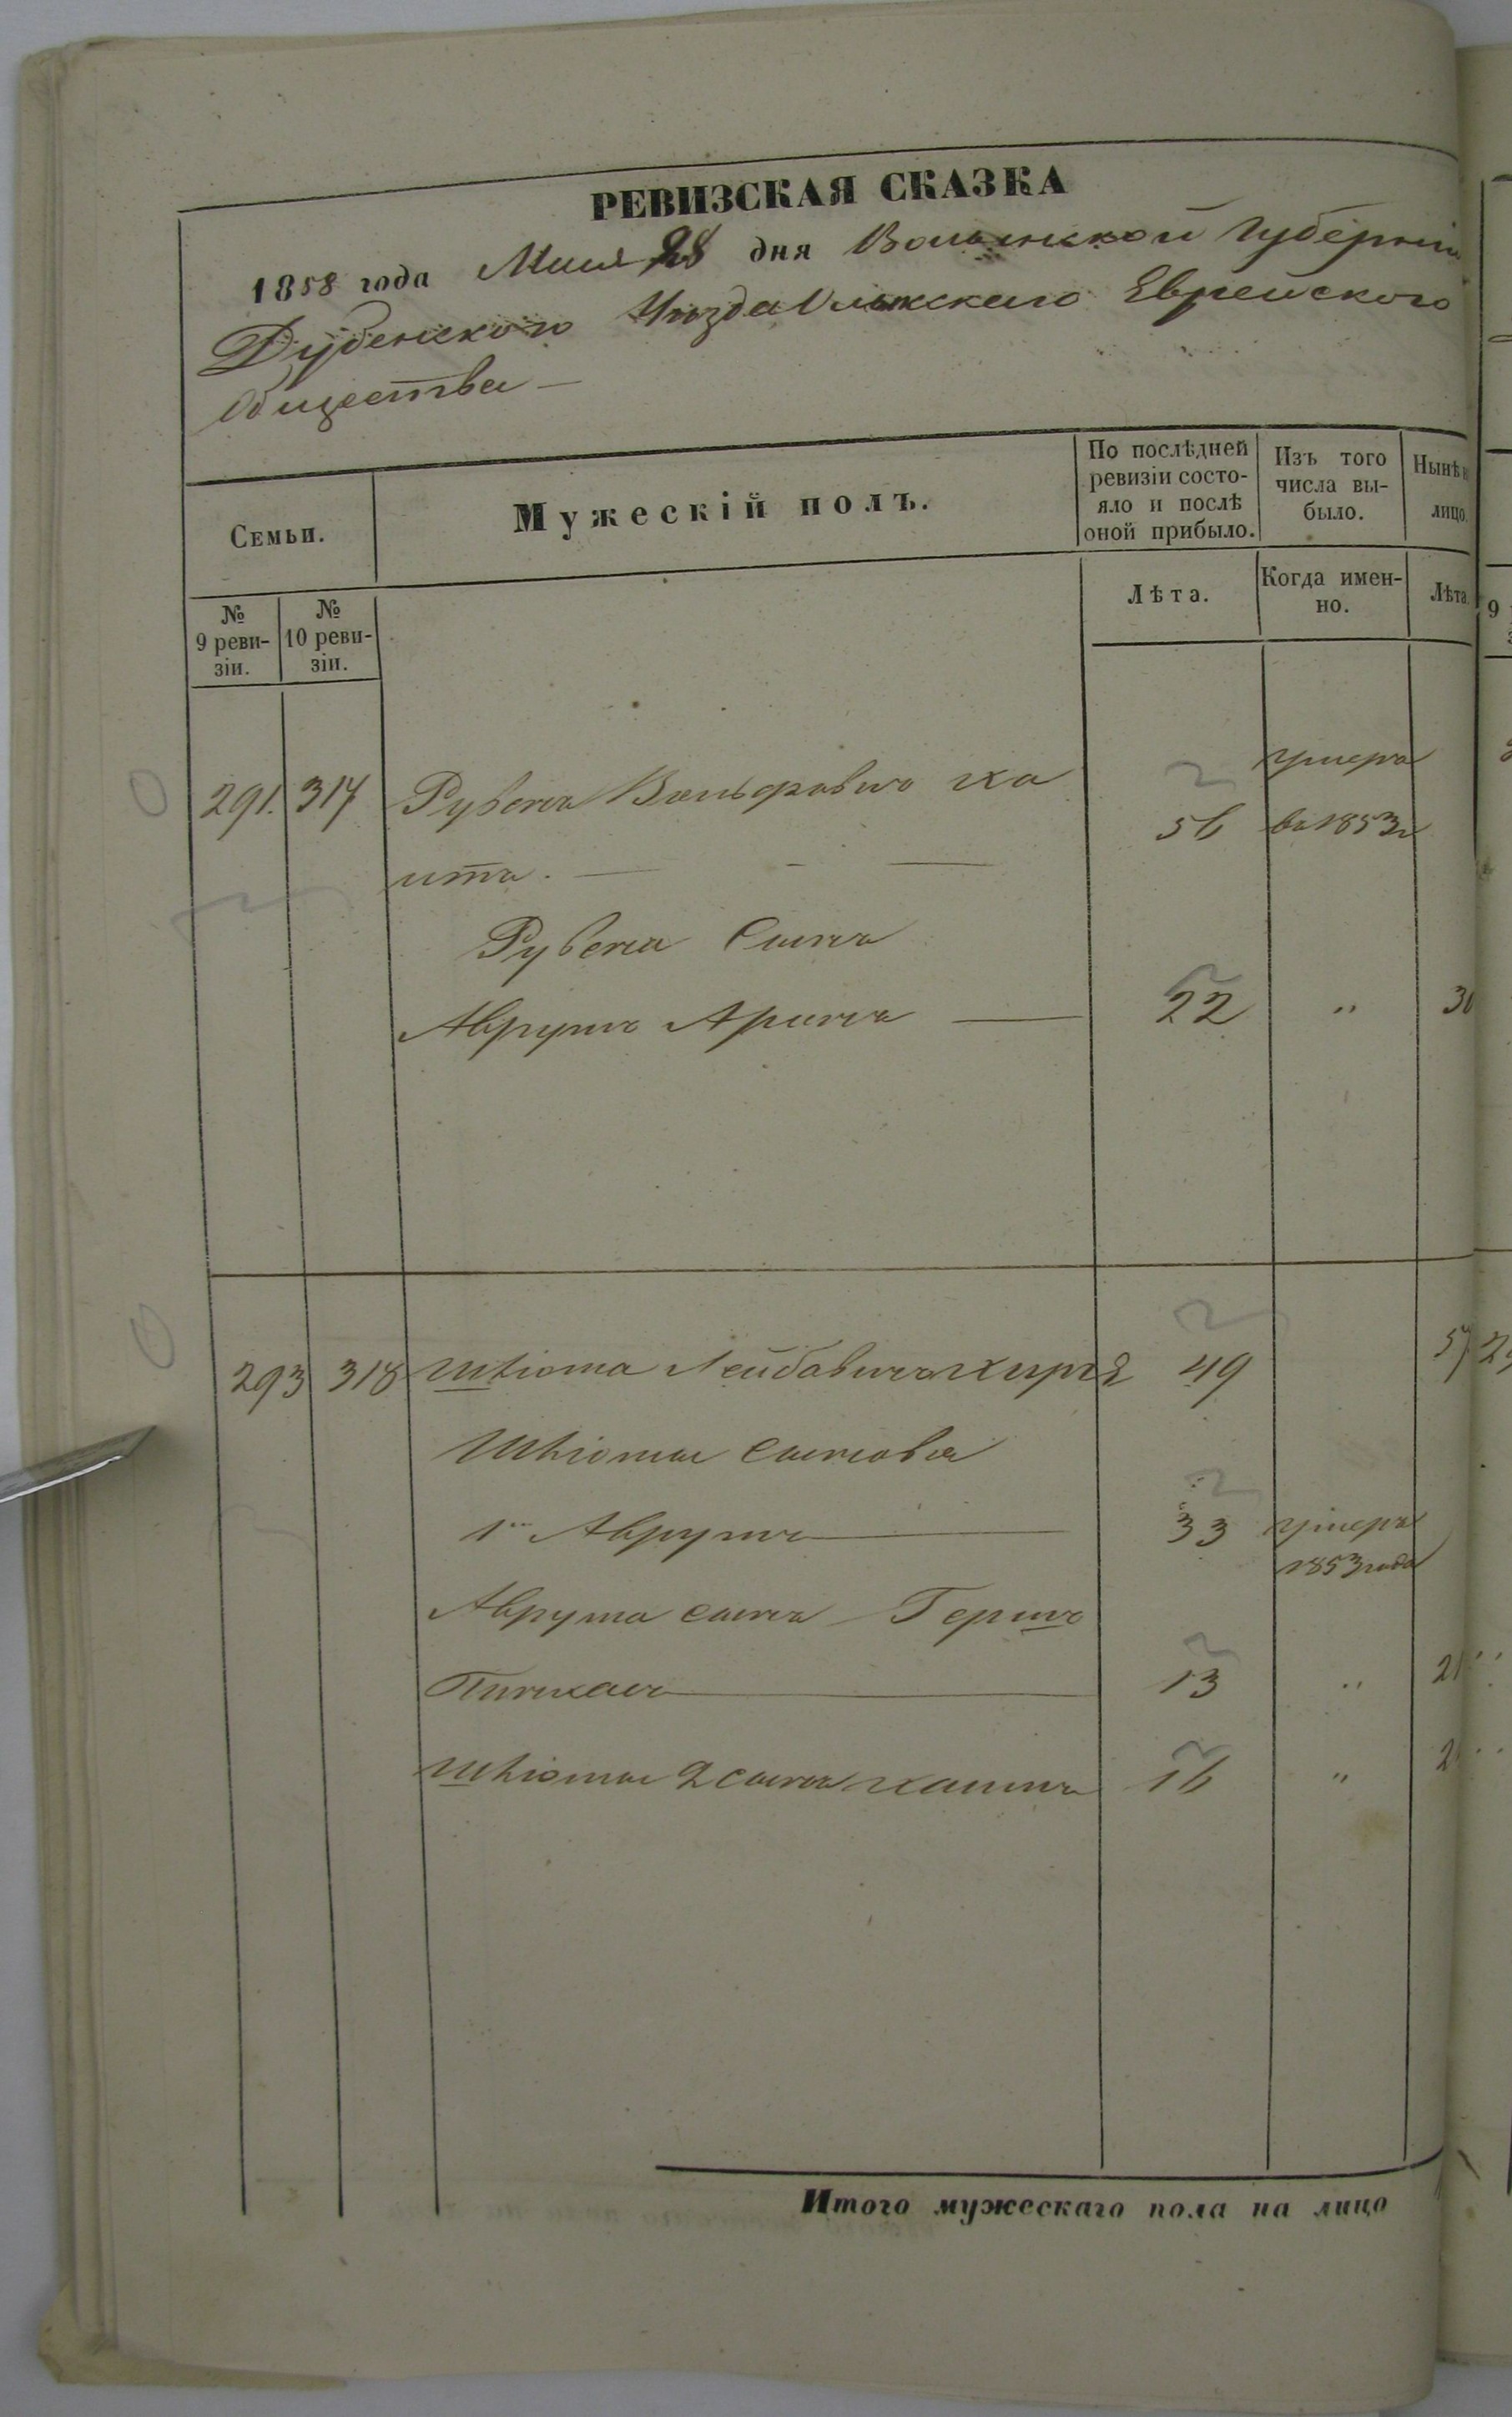 РЕВИЗСКАЯ СКАЗКА
1858 года Маия 28 дня Волынской Губерніи
Дубенского Уѣзда Олыкскаго Еврейского
Общества —
Семьи.
Мужескій полъ.
По послѣдней ревизіи состо-
яло и послѣ
оной прибыло.
Изъ того
числа вы-
было.
Нынѣ
лицо
№
9 реви-
зіи.
№
10 реви-
зіи.
Лѣта.
Когда имен-
но.
Лѣта.
291. 317 Рувенъ Вольфовичъ Ха 56 умеръ
въ 1853г
итъ. —
Рувена Сынъ
Аврумъ Аронъ — 22 „ 30
293 318 Лейбовичъ 49 57
Сыновья
1й Аврумъ — 33 умеръ
1853 года
Аврума сынъ Гершъ
Пинхасъ — 13 „ 21
2 сынъ 16 „ 2
Итого мужескаго пола на лицо